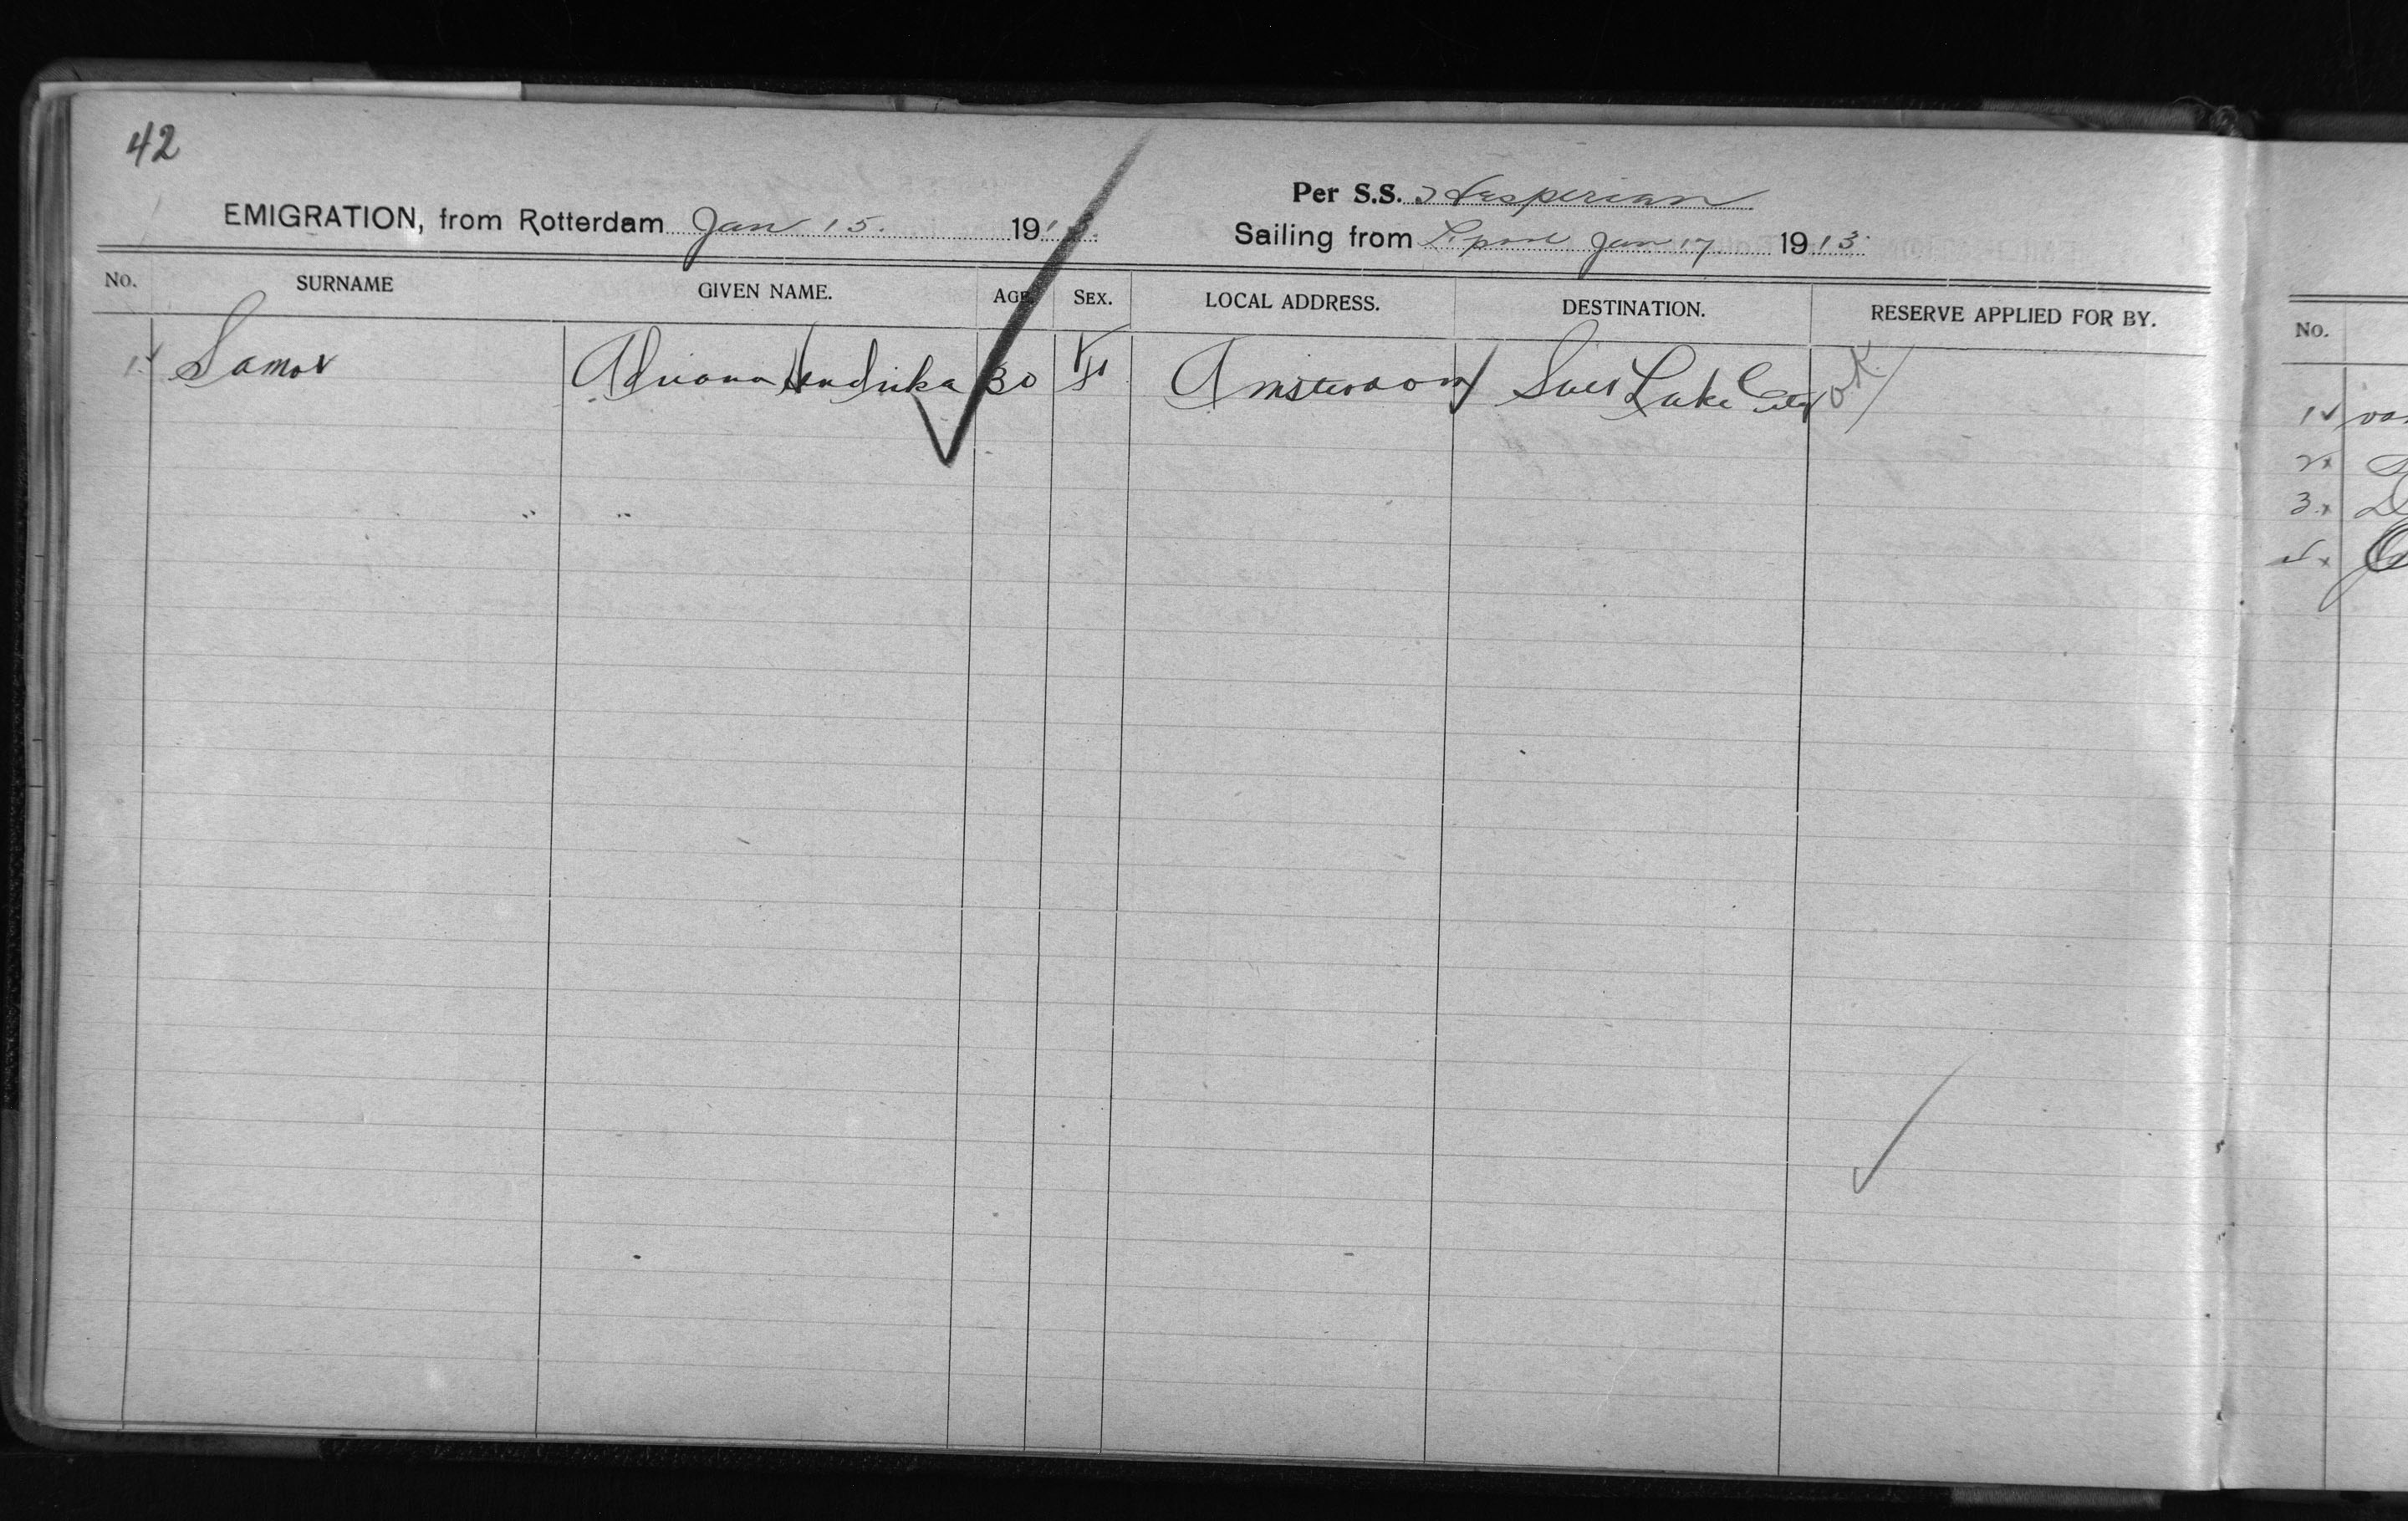 42
EMIGRATION, from Rotterdam Jan 15. 191
Per S.S. Hesperian
Sailing from L'pool Jan 17 1913.
No. SURNAME GIVEN NAME. AGE SEX. LOCAL ADDRESS. DESTINATION. RESERVE APPLIED FOR BY.
1 Adriana Hendrika 30 F Amsterdam Salt Lake City O.K.
No.
1
2
3
4